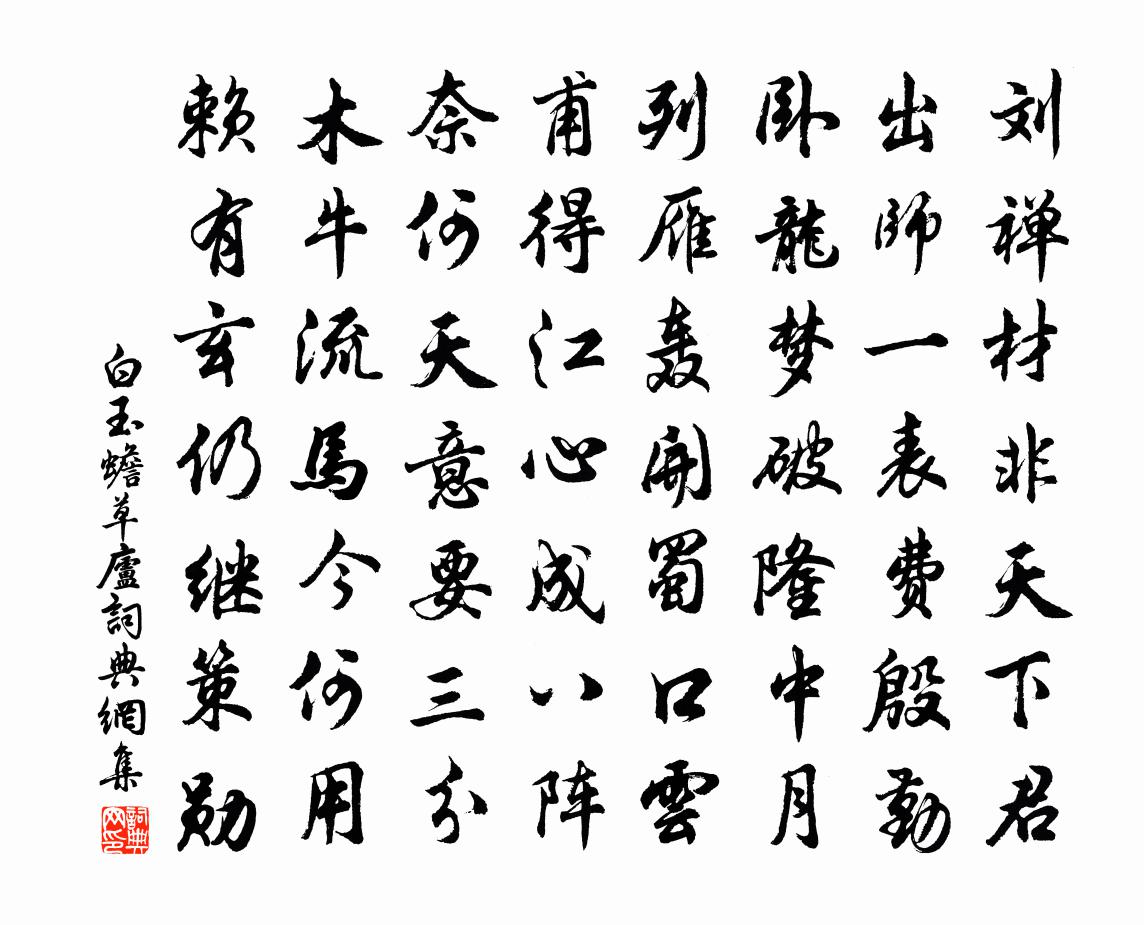 刘禅材非天下君
出師一表费殷勤
卧龍梦破隆中月
列雁轰開蜀口雲
甫得江心成八阵
奈何天意要三分
木牛流馬今何用
赖有玄仍继策勋
白玉蟾草廬詞典網集
詞典网印